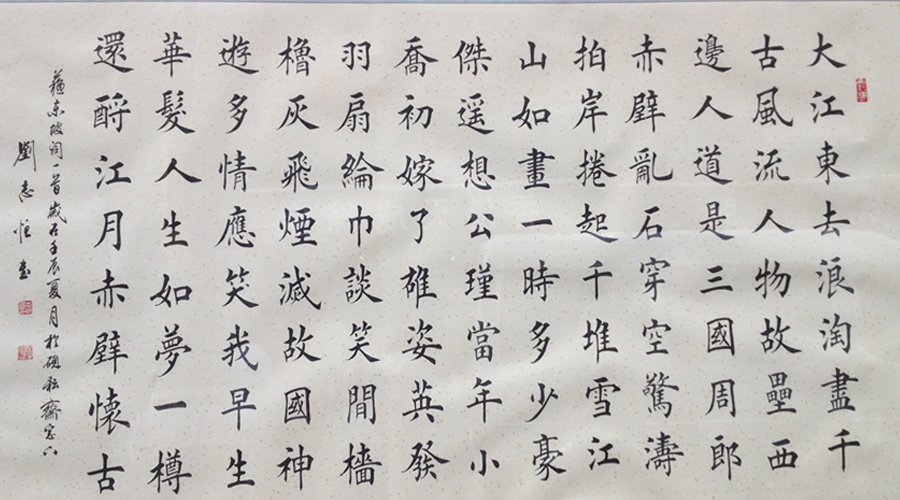 大江東去浪淘盡千
古風流人物故壘西
邊人道是三國周郎
赤壁亂石穿空驚濤
拍岸捲起千堆雪江
山如畫一時多少豪
傑遥想公瑾當年小
喬初嫁了雄姿英發
羽扇綸巾談笑閒檣
櫓灰飛煙滅故國神
遊多情應笑我早生
華髮人生如夢一樽
還酹江月赤壁懷古
蘇東坡詞一首歲在壬辰夏月於硯耘齋窓下
劉志恒書